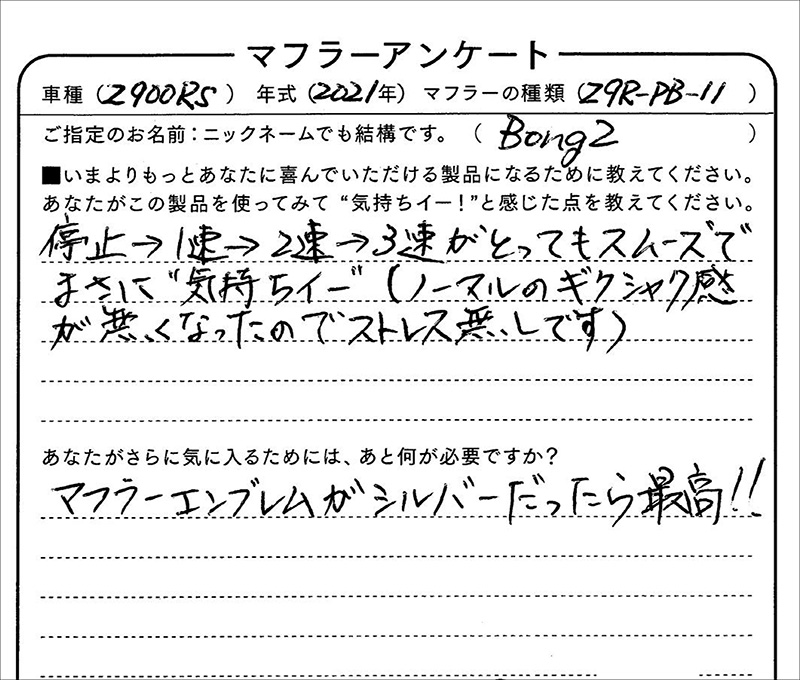 マフラーアンケート
車種（Z900RS） 年式（2021年） マフラーの種類（Z9R-PB-11）
ご指定のお名前：ニックネームでも結構です。（ Bong2 ）
■いまよりもっとあなたに喜んでいただける製品になるために教えてください。
あなたがこの製品を使ってみて“気持ちイー！”と感じた点を教えてください。
停止→1速→2速→3速がとってもスムーズで
まさに“気持ちイー”（ノーマルのギクシャク感
が無くなったのでストレス無しです）
あなたがさらに気に入るためには、あと何が必要ですか？
マフラーエンブレムがシルバーだったら最高!!